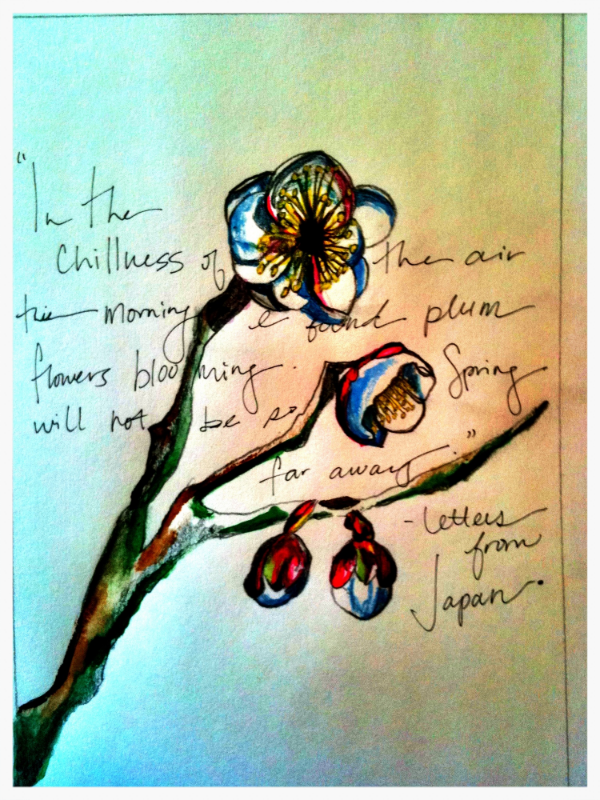 "In the
Chillness of the air
this morning found plum
flowers blooming. Spring
will not be so
far away."
-letters
from
Japan.